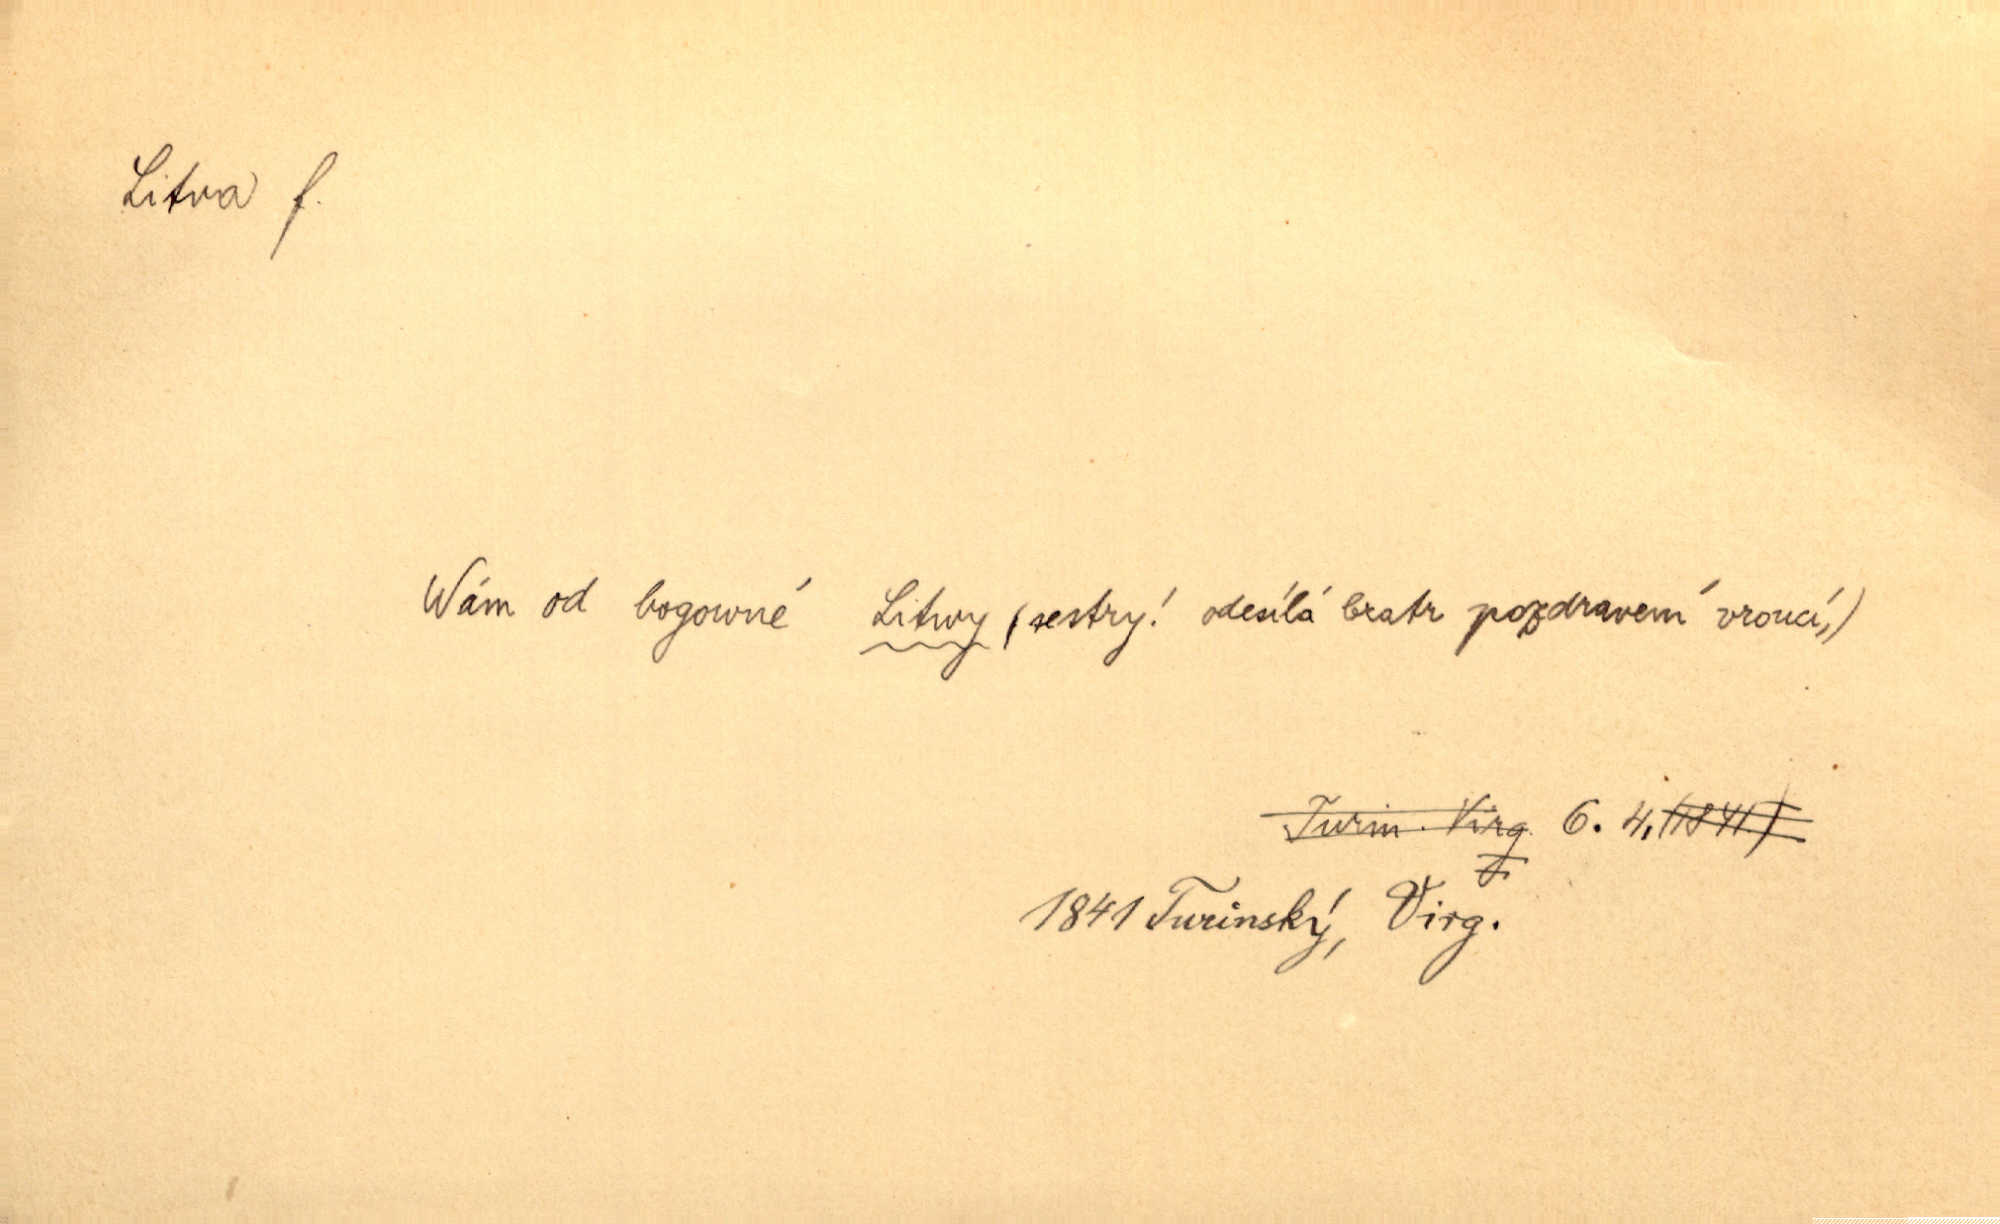 Litva f.
Wám od bogowné Litwy (sestry! odesílá bratr pozdravení vroucí,)
Turin. Virg. 6. 4, (1841)
1841 Turinský, Virg.